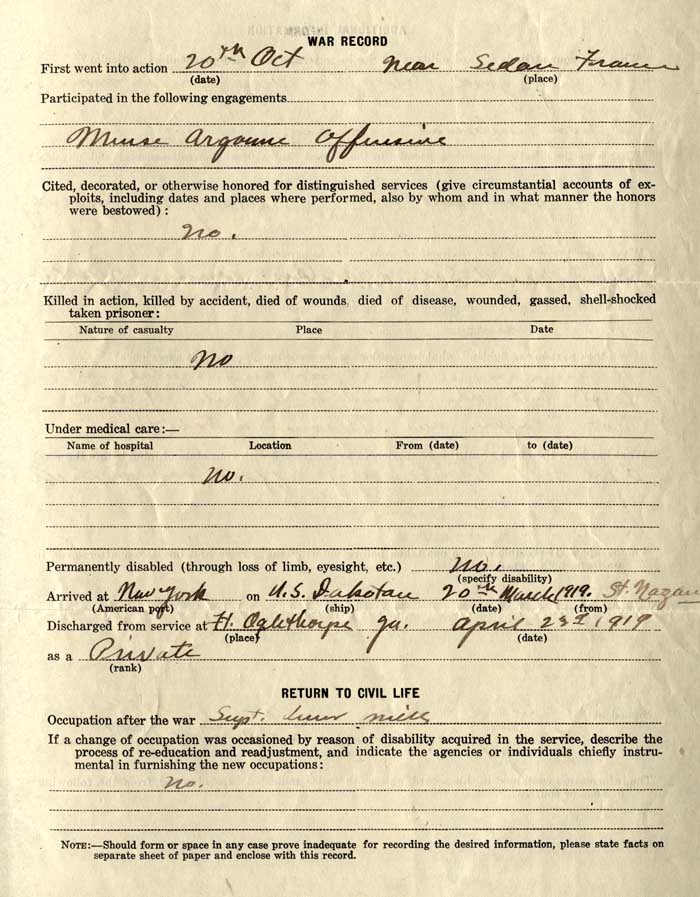 WAR RECORD
First went into action 20th Oct near Sedan France
(date) (place)
Participated in the following engagements
Meuse Argonne Offensive
Cited, decorated, or otherwise honored for distinguished services (give circumstantial accounts of ex-
ploits, including dates and places where performed, also by whom and in what manner the honors
were bestowed) :
no.
Killed in action, killed by accident, died of wounds died of disease, wounded, gassed, shell-shocked
taken prisoner:
Nature of casualty Place Date
no
Under medical care:—
Name of hospital Location From (date) to (date)
no.
Permanently disabled (through loss of limb, eyesight, etc.) no.
(specify disability)
Arrived at New York on U.S. Dakotan 20th March, 1919. St. Nazair
(American port) (ship) (date) (from)
Discharged from service at Ft. Oglethorpe ga. april 1919
(place) (date)
as a Private
(rank)
RETURN TO CIVIL LIFE
Occupation after the war Supt. mill
If a change of occupation was occasioned by reason of disability acquired in the service, describe the
process of re-education and readjustment, and indicate the agencies or individuals chiefly instru-
mental in furnishing the new occupations:
no.
NOTE:—Should form or space in any case prove inadequate for recording the desired information, please state facts on
separate sheet of paper and enclose with this record.